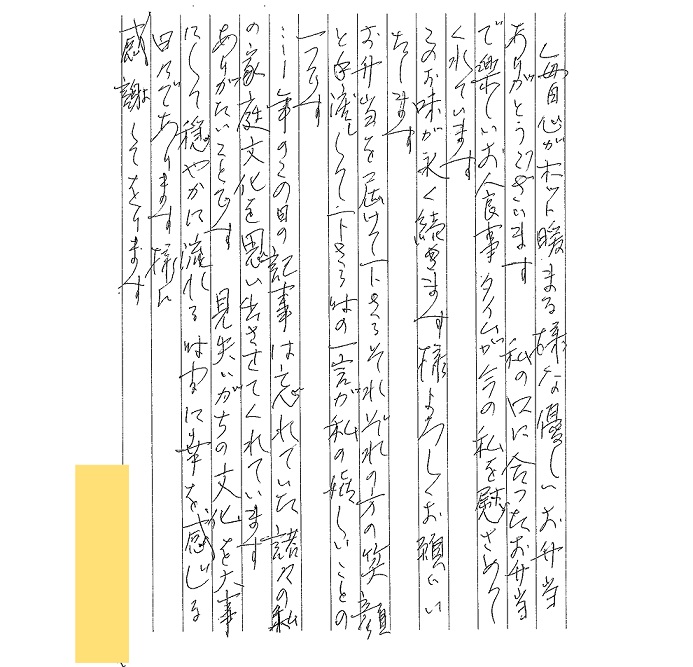 毎日心がホット暖まる様な優しいお弁当
ありがとうございます　私の口に合ったお弁当
で楽しいお食事タイムが今の私を慰さめて
くれています
このお味が永く続きます様よろしくお願いい
たします
お弁当を届けて下さるそれぞれの方の笑顔
と手渡しして下さる時の一言が私の嬉しいことの
一つです
…年のこの日の記事は忘れていた諸々の私
の家庭文化を思い出させてくれています
ありがたいことです　見失いがちの文化を大事
にして穏やかに流れる時間に幸を感じる
日々であります様に
感謝してをります